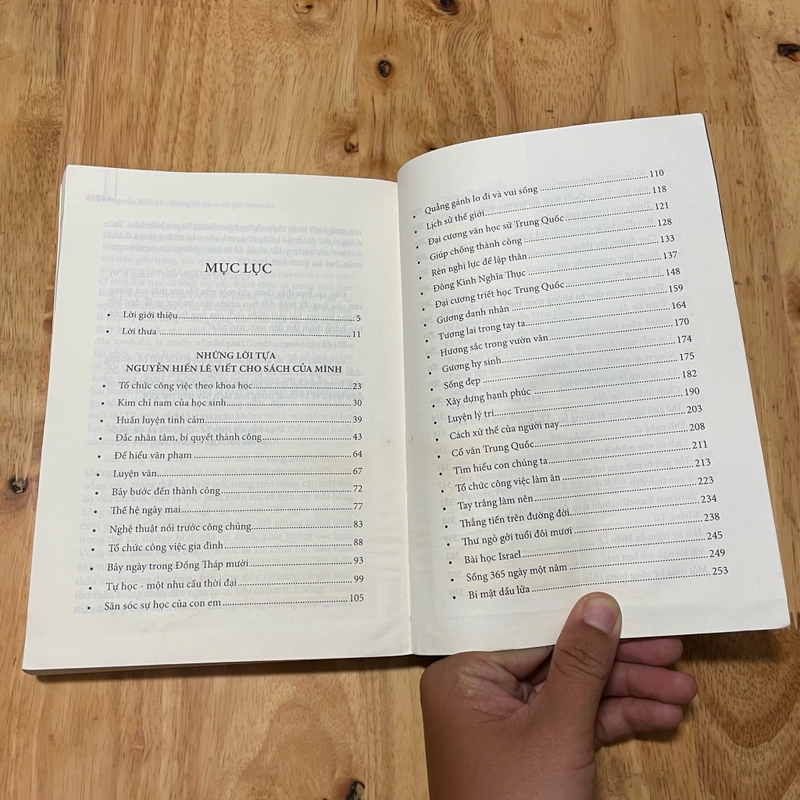 MỤC LỤC
• Lời giới thiệu 5
• Lời thưa 11
NHỮNG LỜI TỰA
NGUYỄN HIẾN LÊ VIẾT CHO SÁCH CỦA MÌNH
• Tổ chức công việc theo khoa học 23
• Kim chỉ nam của học sinh 30
• Huấn luyện tình cảm 39
• Đắc nhân tâm, bí quyết thành công 43
• Để hiểu văn phạm 64
• Luyện văn 67
• Bảy bước đến thành công 72
• Thế hệ ngày mai 77
• Nghệ thuật nói trước công chúng 83
• Tổ chức công việc gia đình 88
• Bảy ngày trong Đồng Tháp mười 93
• Tự học - một nhu cầu thời đại 99
• Săn sóc sự học của con em 105
• Quẳng gánh lo đi và vui sống 110
• Lịch sử thế giới 118
• Đại cương văn học sử Trung Quốc 121
• Giúp chồng thành công 128
• Rèn nghị lực để lập thân 133
• Đông Kinh Nghĩa Thục 137
• Đại cương triết học Trung Quốc 148
• Gương danh nhân 159
• Tương lai trong tay ta 164
• Hương sắc trong vườn văn 170
• Gương hy sinh 174
• Sống đẹp 175
• Xây dựng hạnh phúc 182
• Luyện lý trí 190
• Cách xử thế của người nay 203
• Cổ văn Trung Quốc 208
• Tìm hiểu con chúng ta 211
• Tổ chức công việc làm ăn 213
• Tay trắng làm nên 223
• Thẳng tiến trên đường đời 234
• Thư ngỏ gởi tuổi đôi mươi 238
• Bài học Israel 245
• Sống 365 ngày một năm 249
• Bí mật dầu lửa 253